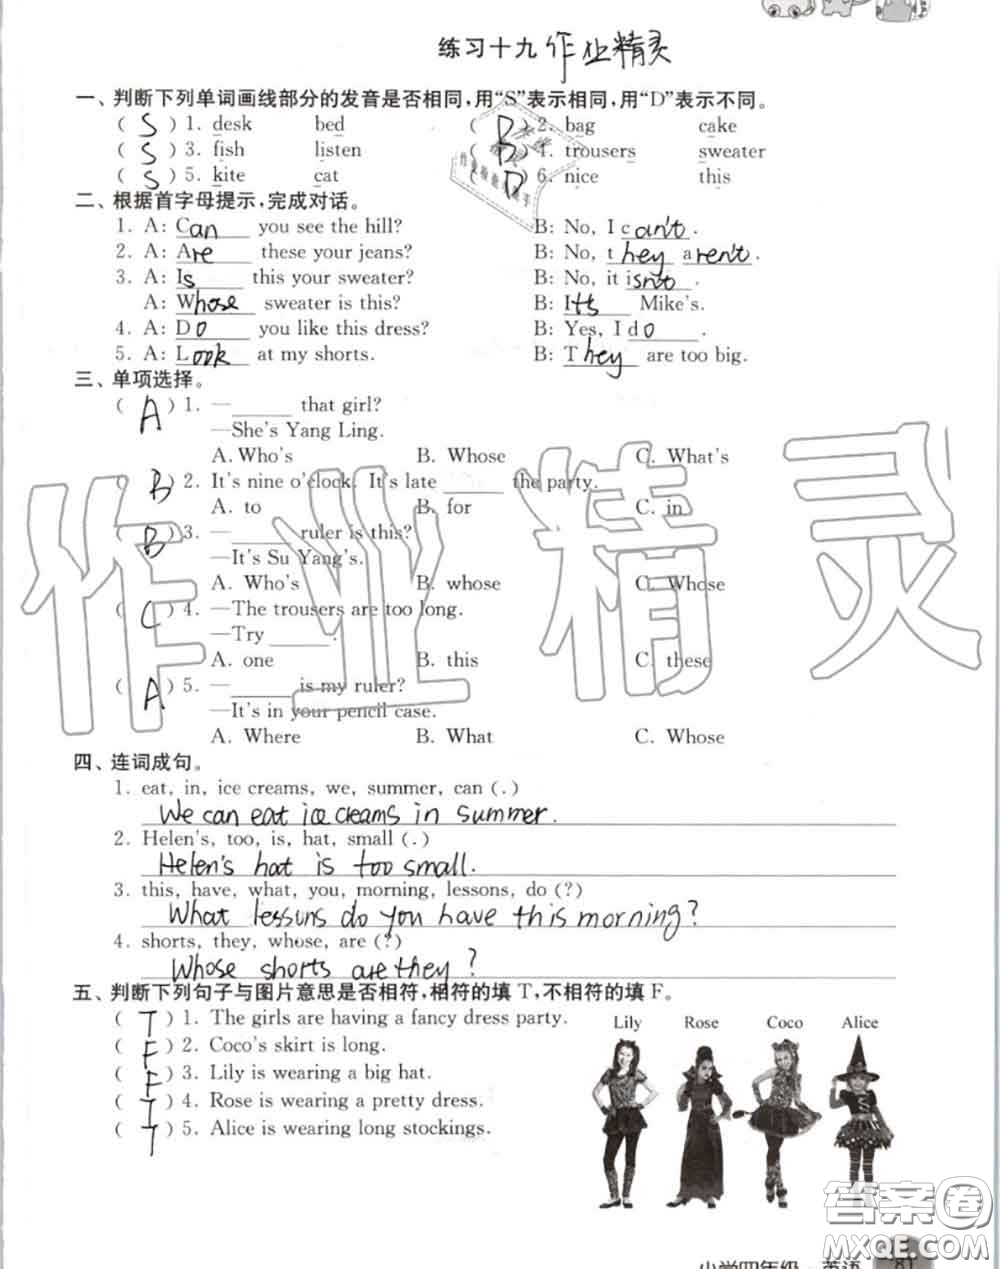 练习十九 作业精灵
一、判断下列单词画线部分的发音是否相同,用“S”表示相同,用“D”表示不同。
( S ) 1. desk bed ( B ) 2. bag cake
( S ) 3. fish listen ( D ) 4. trousers sweater
( S ) 5. kite cat ( D ) 6. nice this
二、根据首字母提示,完成对话。
1. A: Can you see the hill? B: No, I can't.
2. A: Are these your jeans? B: No, they aren't.
3. A: Is this your sweater? B: No, it isn't.
A: Whose sweater is this? B: It's Mike's.
4. A: Do you like this dress? B: Yes, I do.
5. A: Look at my shorts. B: They are too big.
三、单项选择。
( A ) 1. —______ that girl?
—She's Yang Ling.
A. Who's B. Whose C. What's
( B ) 2. It's nine o'clock. It's late ______ the party.
A. to B. for C. in
( B ) 3. —______ ruler is this?
—It's Su Yang's.
A. Who's B. whose C. Whose
( C ) 4. —The trousers are too long.
—Try ______.
A. one B. this C. these
( A ) 5. —______ is my ruler?
—It's in your pencil case.
A. Where B. What C. Whose
四、连词成句。
1. eat, in, ice creams, we, summer, can (.)
We can eat ice creams in summer.
2. Helen's, too, is, hat, small (.)
Helen's hat is too small.
3. this, have, what, you, morning, lessons, do (?)
What lessons do you have this morning?
4. shorts, they, whose, are (?)
Whose shorts are they?
五、判断下列句子与图片意思是否相符,相符的填T,不相符的填F。
( T ) 1. The girls are having a fancy dress party.
( F ) 2. Coco's skirt is long.
( F ) 3. Lily is wearing a big hat.
( T ) 4. Rose is wearing a pretty dress.
( T ) 5. Alice is wearing long stockings.
Lily Rose Coco Alice
作业精灵
答案卷
MXQE.COM
小学四年级·英语 81